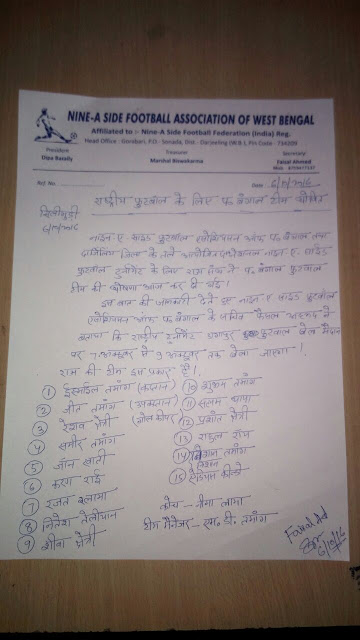 NINE-A SIDE FOOTBALL ASSOCIATION OF WEST BENGAL
Affiliated to :- Nine-A Side Football Federation (India) Reg.
Head Office : Gorabari, P.O - Sonada, Dist - Darjeeling (W.B.), Pin Code - 734209
President Treasurer Secretary
Dipa Barally Marshal Biswakarma Faisal Ahmed
Ref. No. Date 6/10/2016
राष्ट्रीय फुटबॉल के लिए प. बंगाल टीम घोषित
सिलीगुड़ी
6/10/2016
नाइन ए साइड फुटबॉल एसोसिएशन ऑफ प. बंगाल तथा
दार्जिलिंग जिला के तले आयोजित नाइन ए साइड
फुटबॉल टुर्नामेंट के लिए राम प. बंगाल फुटबॉल
टीम की घोषणा आज कर दी गई।
इस बात की जानकारी देते हुए नाइन ए साइड फुटबॉल
एसोसिएशन ऑफ प. बंगाल के सचिव फैसल अहमद ने
बताया कि राष्ट्रीय टुर्नामेंट फुटबॉल खेल मैदान
पर 7 अक्टूबर से 9 अक्टूबर तक खेला जाएगा।
राज्य की टीम इस प्रकार है।
1 ईस्माईल तमांग (कप्तान) 10 शुभम तमांग
2 जीत तमांग (उपकप्तान) 11 सलम थापा
3 छेत्री (गोल कीपर) 12 प्रशांत छेत्री
4 समीर तमांग 13 राहुल राय
5 जॉन खाती 14 तमांग
6 करण राई 15
7 रजत वलामा कोच - लामा
8 नितेश टीम मैनेजर - एम. डी. तमांग
9 शीवा छेत्री 6/10/16